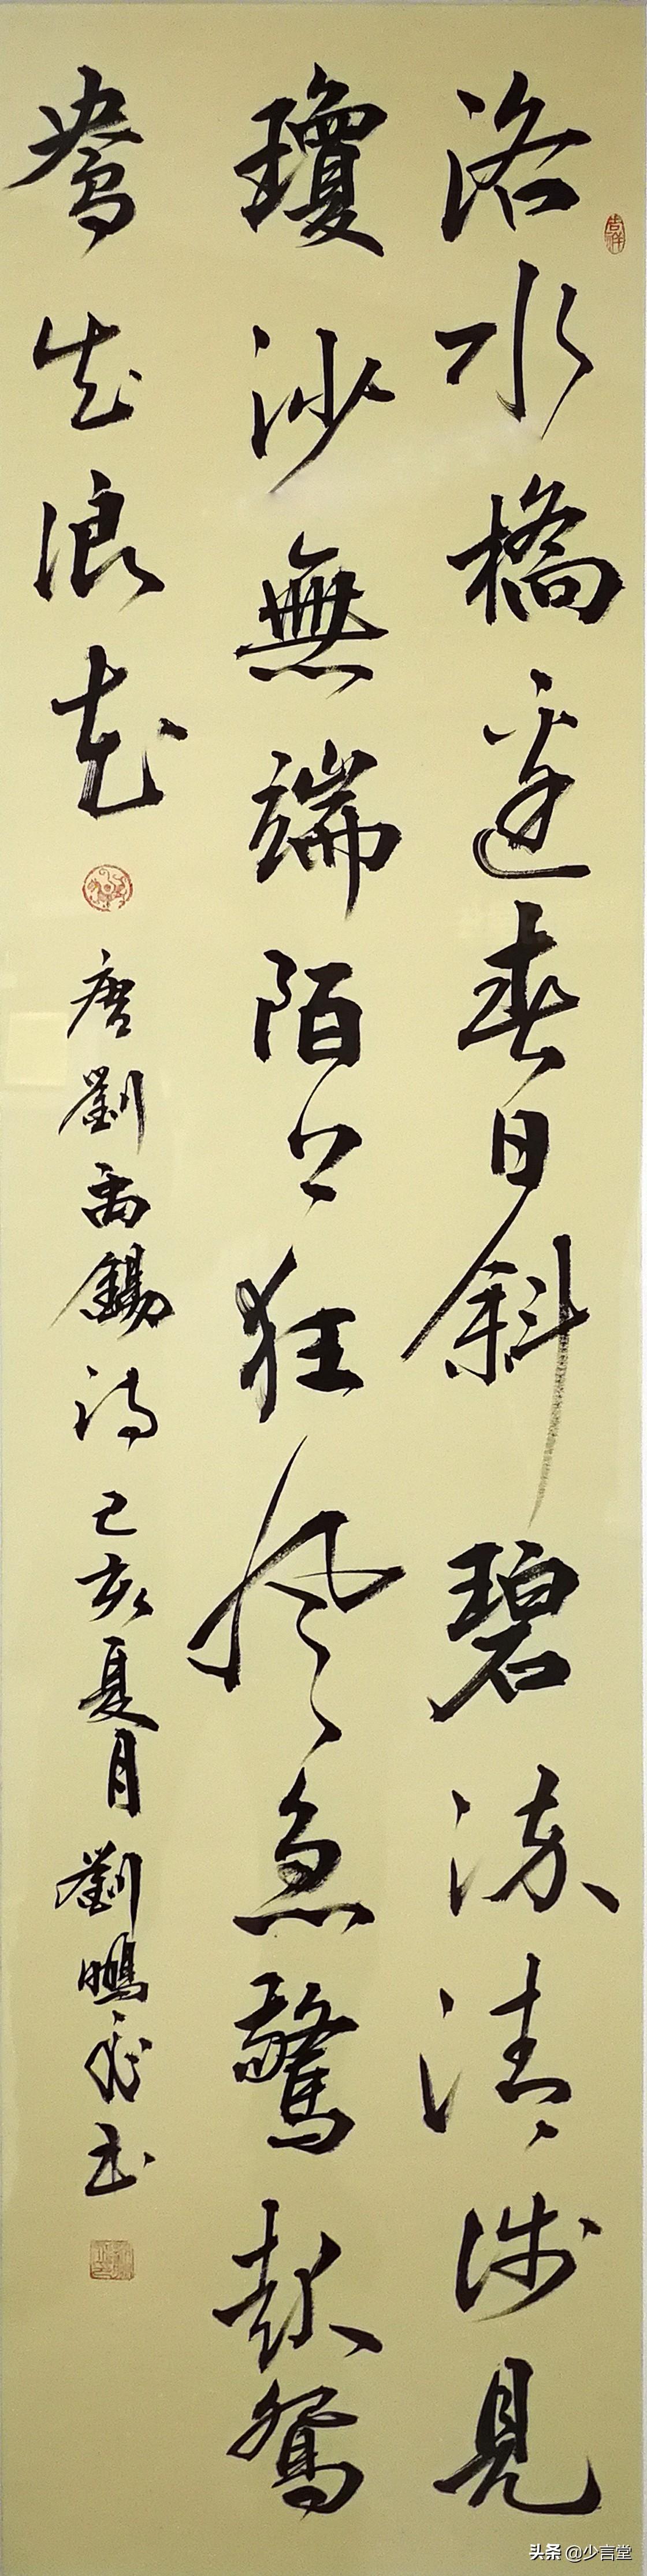 洛水橋邊春日斜碧流清淺見
瓊沙無端陌上狂風急驚起鴛
鴦出浪花
唐劉禹錫詩己亥夏月劉鵬飛書
吉祥
头条 @少言堂